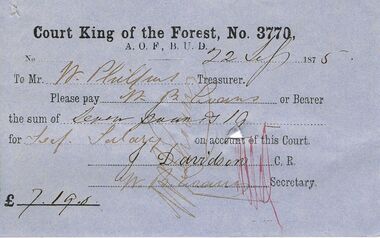 Court King of the Forest, No. 3770,
A. O. F., B. U. D.
No 22 1875
To Mr. W. Treasurer.
Please pay W B Evans or Bearer
the sum of Seven pounds 19
for Salary on account of this Court.
Davidson C. R.
W B Evans Secretary.
£ 7.19.0